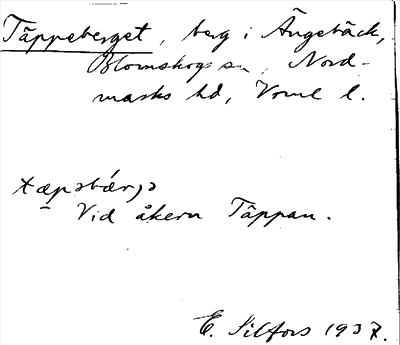 Täppeberget, berg i Ängebäck,
Blomskogs sn, Nord-
marks hd, Vrml l.
tæpəbǽrjə
Vid åkern Täppan.
E. Silfors 1937.